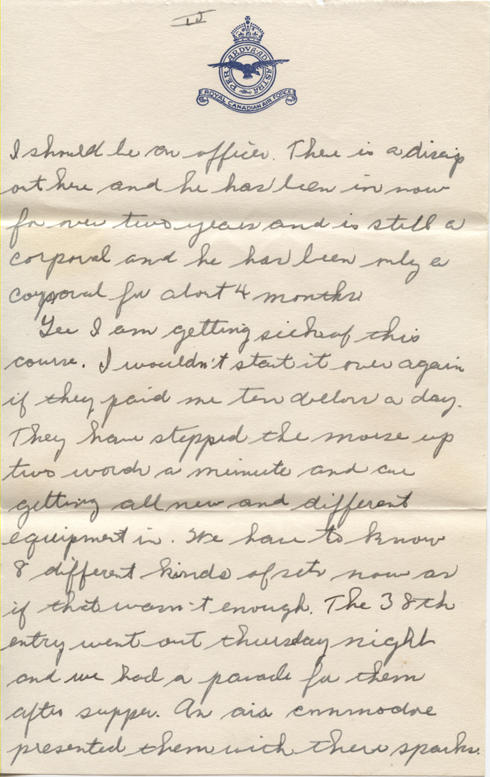 IV
PER ARDVA AD ASTRA
ROYAL CANADIAN AIR FORCE
I should be an officer. There is a discip
out here and he has been in now
for over two years and is still a
corporal and he has been only a
corporal for about 4 months
Gee I am getting sick of this
course. I wouldn't start it over again
if they paid me ten dollars a day.
They have stepped the morse up
two words a minute and are
getting all new and different
equipment in. We have to know
8 different kinds of sets now as
if that wasn't enough. The 38th
entry went out thursday night
and we had a parade for them
after supper. An air commodore
presented them with there sparks.